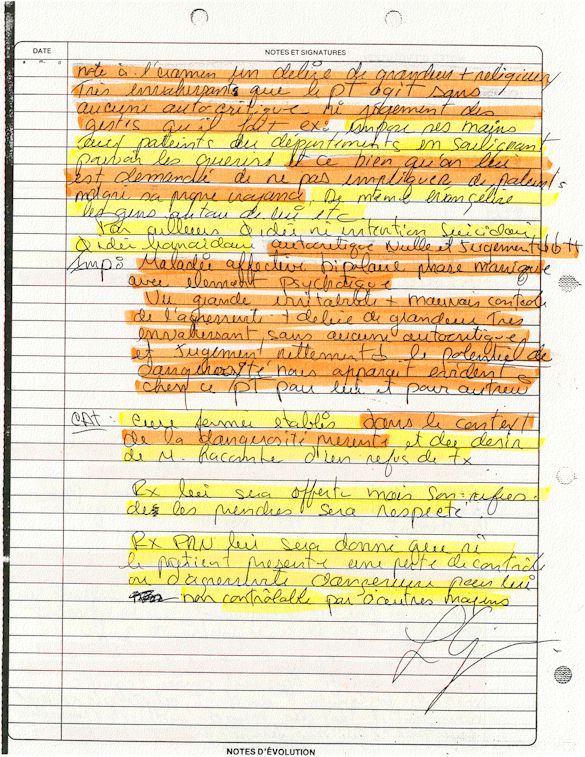 DATE
NOTES ET SIGNATURES
noté à l'examen un délire de grandeur + religieux
Très envahissant que le pt agit sans
aucune autocritique ni jugement des
gestes qu'il fait ex: impose ses mains
aux patients du département en
pouvoir les guérir et ce bien qu'on lui
est demandé de ne pas impliquer des patients
malgré sa propre croyance. De même évangélise
les gens autour de lui etc
Par ailleurs Ø idée ni intention suicidaire
Ø idée homicidaire autocritique nulle et jugement
Imp: Maladie affective bipolaire phase maniaque
avec élément psychotique
Vu grande irritabilité + mauvais contrôle
de l'agressivité + délire de grandeur Très
envahissant sans aucune autocritique
et jugement nettement le potentiel de
dangerosité nous apparaît évident
chez ce pt pour lui et pour autrui
CAT: Cure fermée établie dans le context
de la dangerosité présente et
de d'un refus de tx
Rx lui sera offerte mais son refus
de les prendre sera respecté.
Rx PRN lui sera donné que si
le patient présente une perte de contrôle
ou d'agressivité dangereuse pour lui
non contrôlable par d'autres moyens
NOTES D'ÉVOLUTION